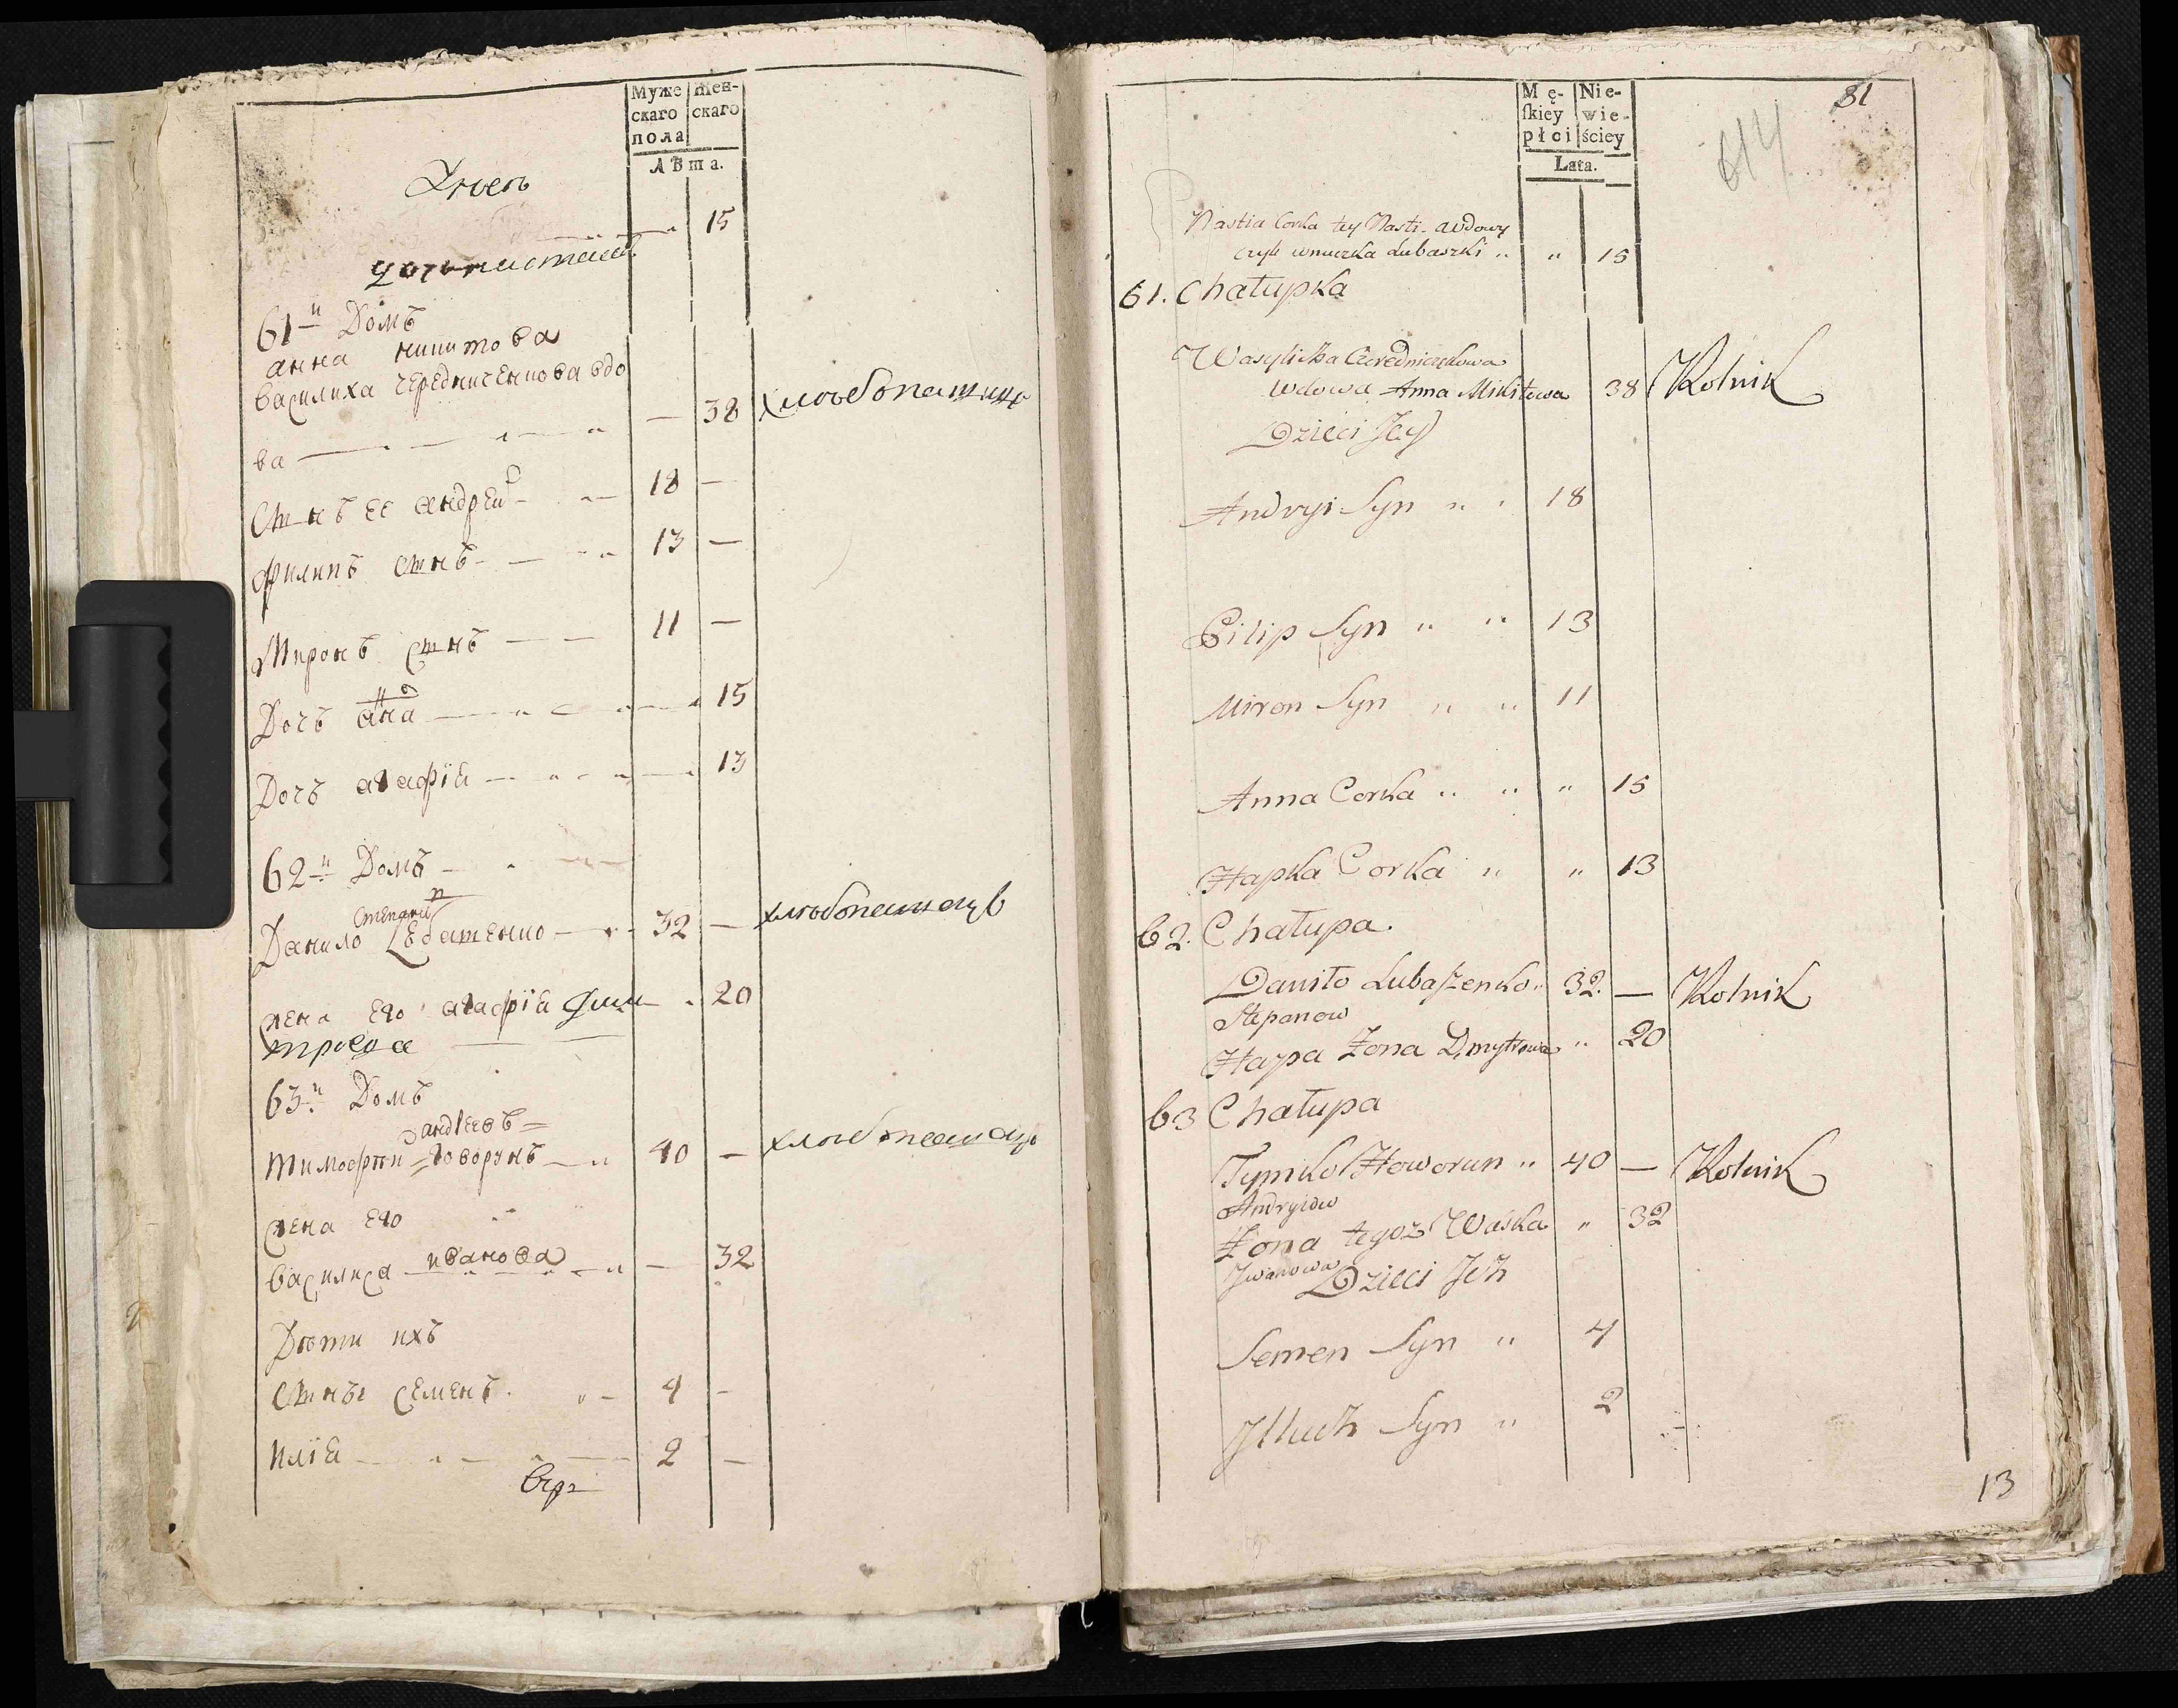 Муже
скаго
пола
Жен-
скаго
Лѣта.
15
дочь настасья
61-й Домъ
анна никитова
василиха чередниченкова вдо
ва — 38 хлѣбопашица
Сынъ ее андрей 18 —
Филипъ сынъ 13 —
Миронъ сынъ 11 —
Дочь анна 15
Дочь агафія 13
62-й Домъ
степановъ
Данило Лебашенко 32 — хлѣбопашецъ
жена его агафія дми 20
трова
63-й Домъ
андреевъ
тимофей говорунъ 40 — хлѣбопашецъ
жена его
василиса иванова — 32
Дѣти ихъ
Сынъ семенъ 4 —
илія 2 —
Mę-
ſkiey
płci
Nie-
wie-
ściey
Lata.
81
614
Nastia Corka tey Nasti wdowy
czyli wnuczka Lubaszki " " 15
61. Chałupka
Wasylicha Czeredniczykowa
wdowa Anna Mikitowa 38 Rolnik
Dzieci Jey
Andryi Syn " " 18
Pilip Syn " " 13
Miron Syn " " 11
Anna Corka " " " 15
Hapka Corka " " 13
62. Chałupa.
Daniło Lubaſzenko " 32. — Rolnik
Stepanow
Hapa Żona Dmytrowa " 20
63 Chałupa
Tymko Howorun " 40 — Rolnik
Andryiow
Żona tegoż Waśka " 32
Jwanowa Dzieci Jch
Semen Syn " 4
Jlluch Syn " 2
13